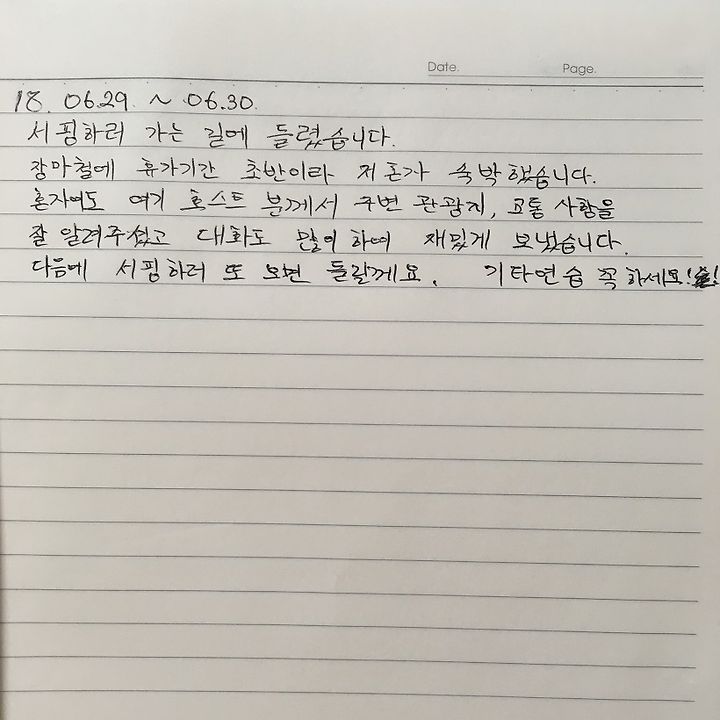 Date.
Page.
18. 06.29. ~ 06.30.
서핑하러 가는 길에 들렸습니다.
장마철에 휴가기간 초반이라 저 혼자 숙박했습니다.
혼자여도 여기 호스트 분께서 주변 관광지, 교통 사항을
잘 알려주셨고 대화도 많이 하여 재밌게 보냈습니다.
다음에 서핑하러 또 오면 들릴께요. 기타연습 꼭 하세요!!